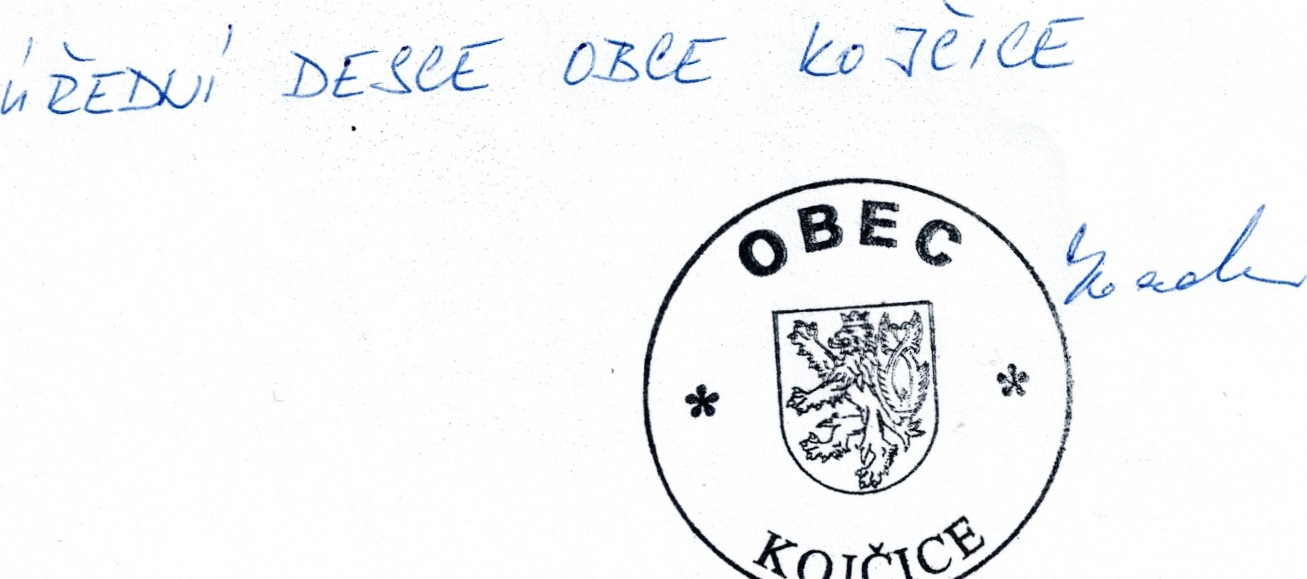 ÚŘEDNÍ DESCE OBCE KOJČICE
OBEC
* *
KOJČICE